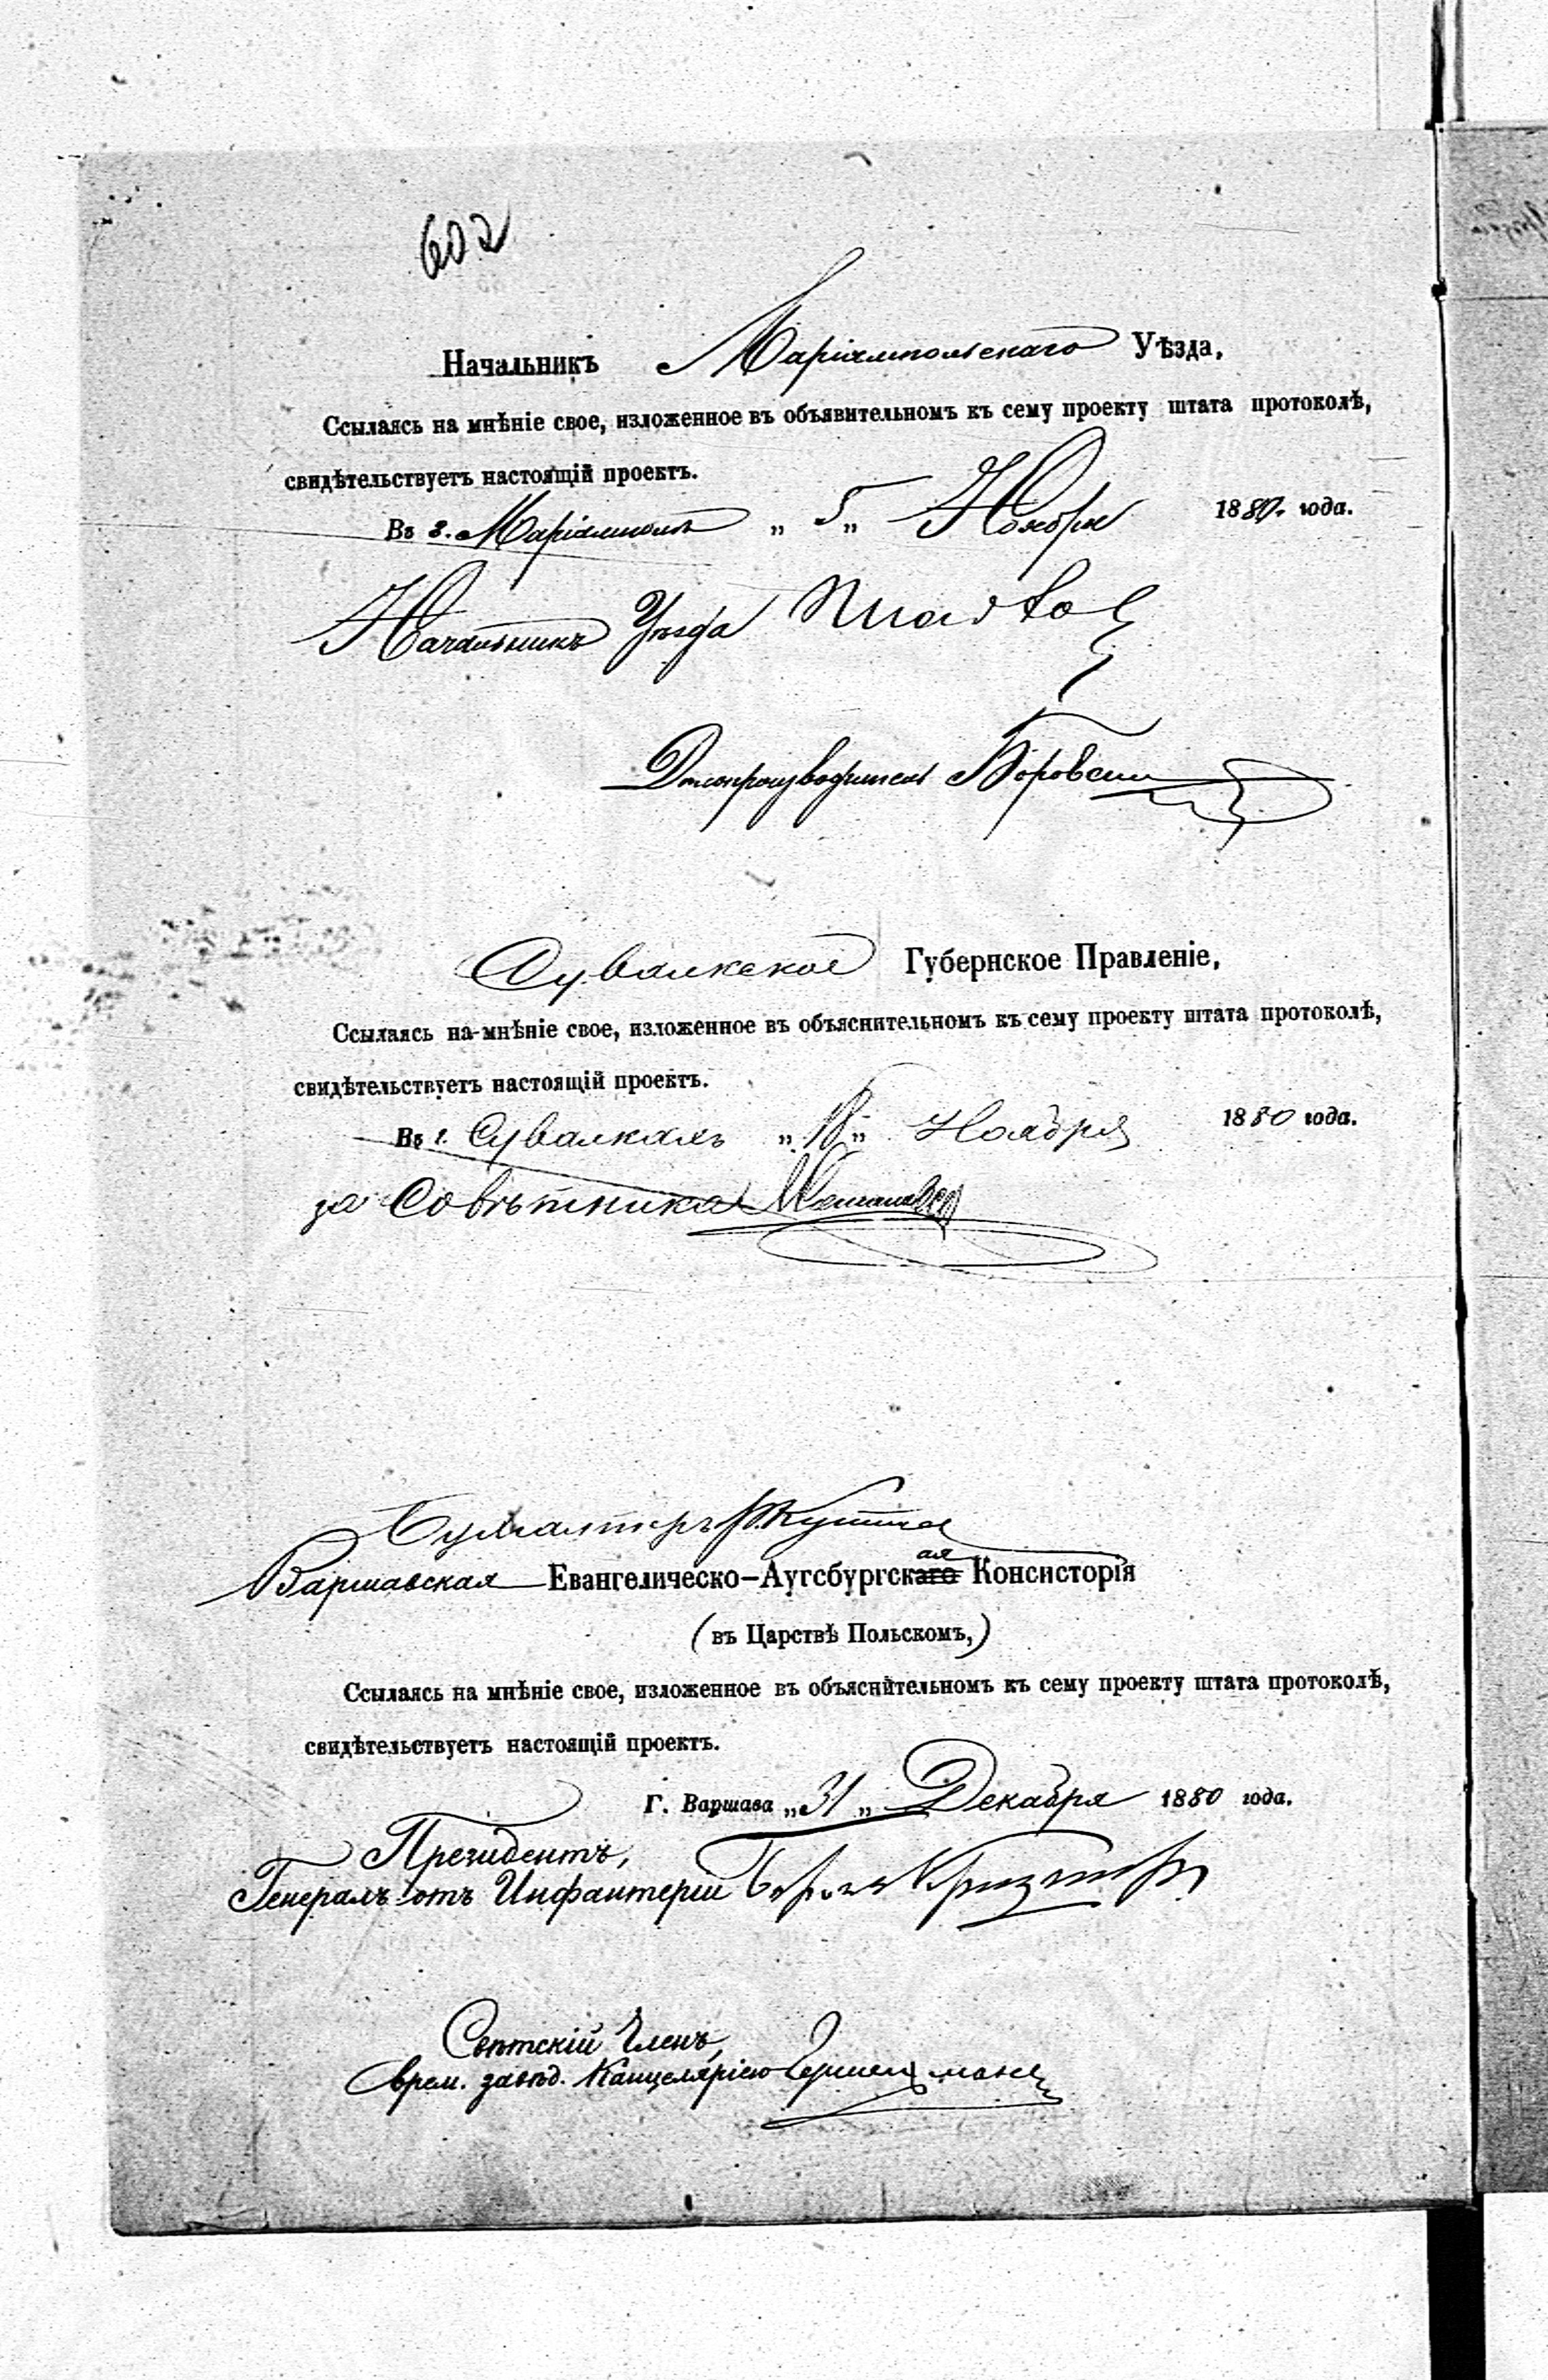 602
Начальникъ Маріампольскаго Уѣзда,
Ссылаясь на мнѣніе свое, изложенное въ объявительномъ къ сему проекту штата протоколѣ,
свидѣтельствуетъ настоящій проектъ.
Въ г. Маріамполѣ „5„ Ноября 1880 года.
Начальникъ Уѣзда
Дѣлопроизводитель Боровскій
Сувалкское Губернское Правленіе,
Ссылаясь на мнѣніе свое, изложенное въ объяснительномъ къ сему проекту штата протоколѣ,
свидѣтельствуетъ настоящій проектъ.
Въ г. Сувалкахъ „18„ Ноября 1880 года.
за Совѣтника
Бухгалтеръ
Варшавская Евангелическо-Аугсбургскаго ая Консисторія
(въ Царствѣ Польскомъ,)
Ссылаясь на мнѣніе свое, изложенное въ объяснительномъ къ сему проекту штата протоколѣ,
свидѣтельствуетъ настоящій проектъ.
Г. Варшава „31„ Декабря 1880 года.
Президентъ,
Генералъ отъ Инфантеріи Баронъ Криднеръ
Свѣтскій Членъ,
врем. завѣд. Канцеляріею